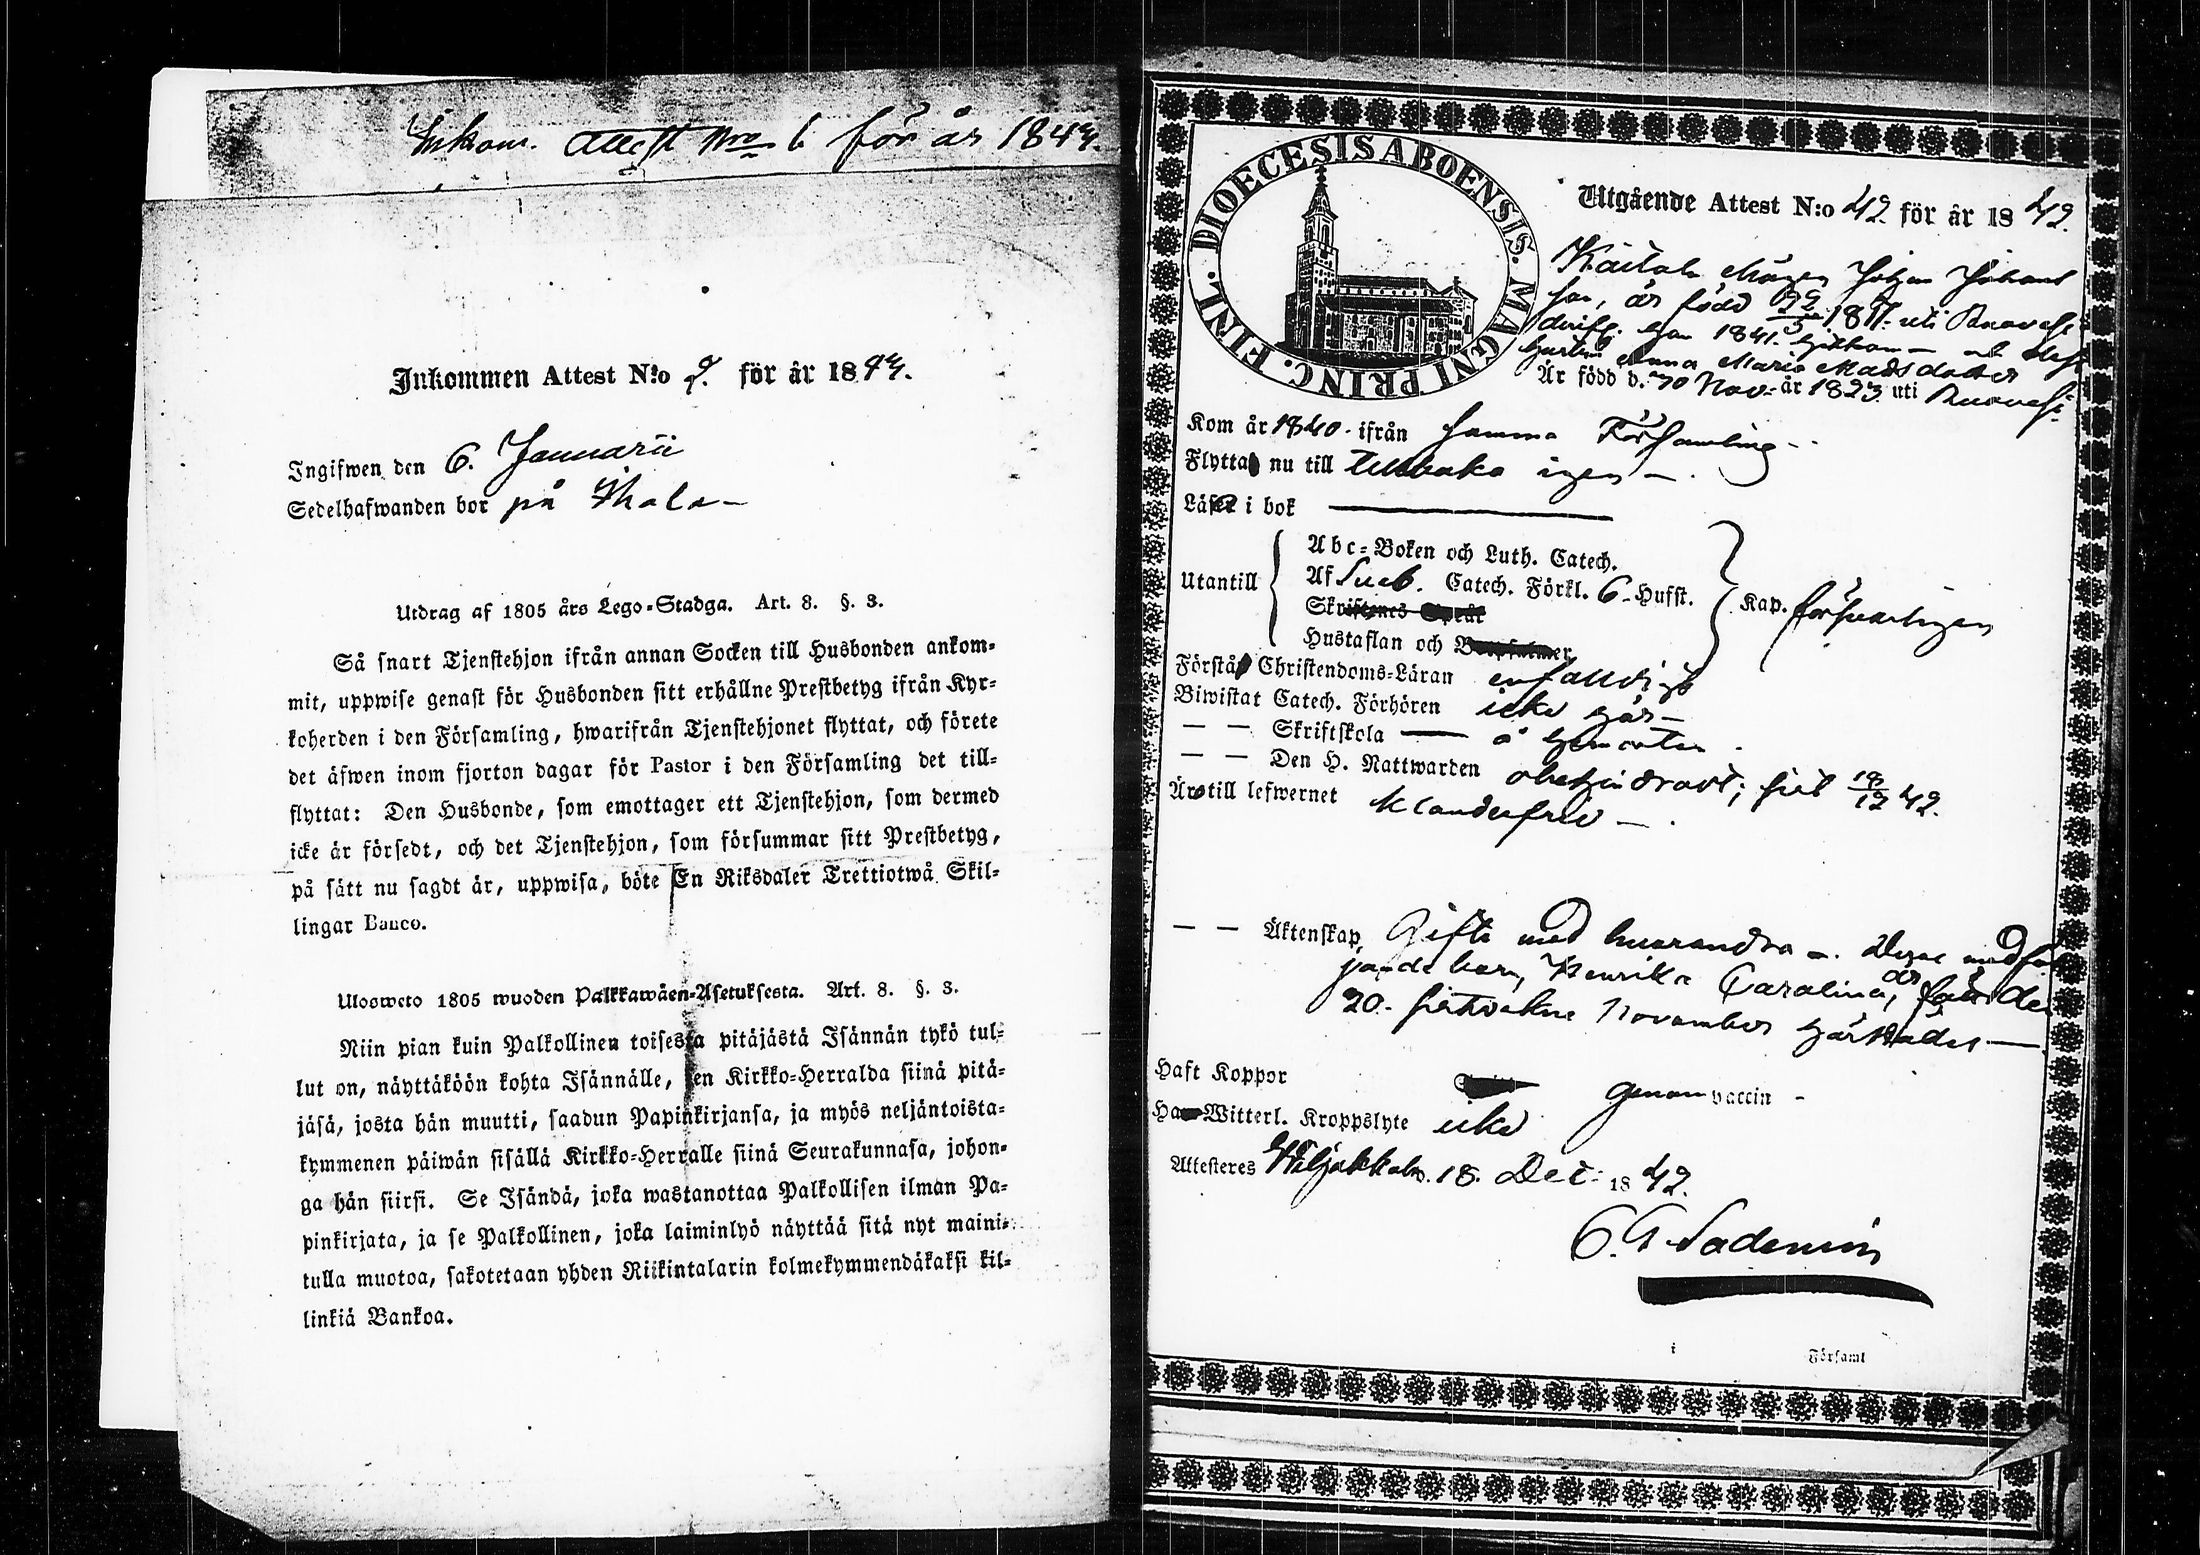 Inkom. Attest Nro 6 för år 1843.
Inkommen Attest N:o 9. för år 1843.
Ingifwen den 6. Januarii
Sedelhafwanden bor på Ikala
Utdrag af 1805 års Lego-Stadga. Art. 8. §. 3.
Så snart Tjenstehjon ifrån annan Socken till Husbonden ankom-
mit, uppwise genast för Husbonden sitt erhållne Prestbetyg ifrån Kyr-
koherden i den Församling, hwarifrån Tjenstehjonet flyttat, och förete
det äfwen inom fjorton dagar för Pastor i den Församling det till-
flyttat: Den Husbonde, som emottager ett Tjenstehjon, som dermed
icke är försedt, och det Tjenstehjon, som försummar sitt Prestbetyg,
på sätt nu sagdt är, uppwisa, böte En Riksdaler Trettiotwå Skil-
lingar Banco.
Ulosweto 1805 wuoden Palkkawäen-Asetuksesta. Art. 8. §. 3.
Niin pian kuin Palkollinen toisesta pitäjästä Isännän tykö tul-
lut on, näyttäköön kohta Isännälle, sen Kirkko-Herralda siinä pitä-
jäsä, josta hän muutti, saadun Papinkirjansa, ja myös neljäntoista-
kymmenen päiwän sisällä Kirkko-Herralle siinä Seurakunnasa, johon-
ga hän siirsi. Se Isändä, joka wastanottaa Palkollisen ilman Pa-
pinkirjata, ja se Palkollinen, joka laiminlyö näyttää sitä nyt maini-
tulla muotoa, sakotetaan yhden Riikintalarin kolmekymmendäkaksi kil-
linkiä Bankoa.
DIOECESIS ABOENSIS. MAGNI PRINC. FINL.
Utgående Attest N:o 42 för år 1842.
Johan Johans
son, är född 1817 uti Ruovesi
1841. och dess
hustru Anna Maria Madsdotter
Är född d. 30 Nov. år 1823 uti Ruovesi
Kom år 1840 ifrån samma Församling
Flytta nu till tillbaka igen
Läser i bok
Utantill
Abc-Boken och Luth. Catech.
Af Sveb. Catech. Förkl. 6 Hufst.
Skriftenes Språk
Hustaflan och Botpsalmer
Kap. försvarligen
Förstå Christendoms-Läran enfaldigt
Biwistat Catech. Förhören icke här
— — Skriftskola å hemorten
— — Den H. Nattwarden obehindradt; sist 18/12 42.
Äro till lefwernet klanderfrie
— — Äktenskap, Gifte med hvarandra. Deras medföl
jande barn, Henrika Carolina, är född de
20. sistvekne November härstädes
Haft Koppor genom vaccin
Ha Witterl. Kroppslyte icke
Attesteras Wiljakkala d. 18. Dec: 1842.
i Församl